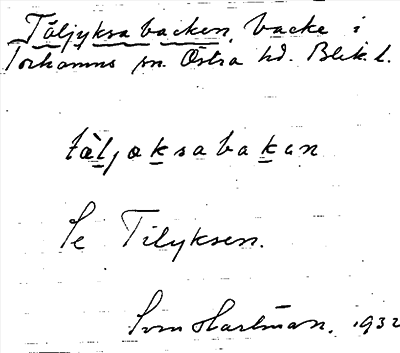 Täljyksabacken, backe i
Torhamns sn. Östra hd. Blek. l.
tàljoksabakan
Se Tilyksen.
Sven Hartman. 1932